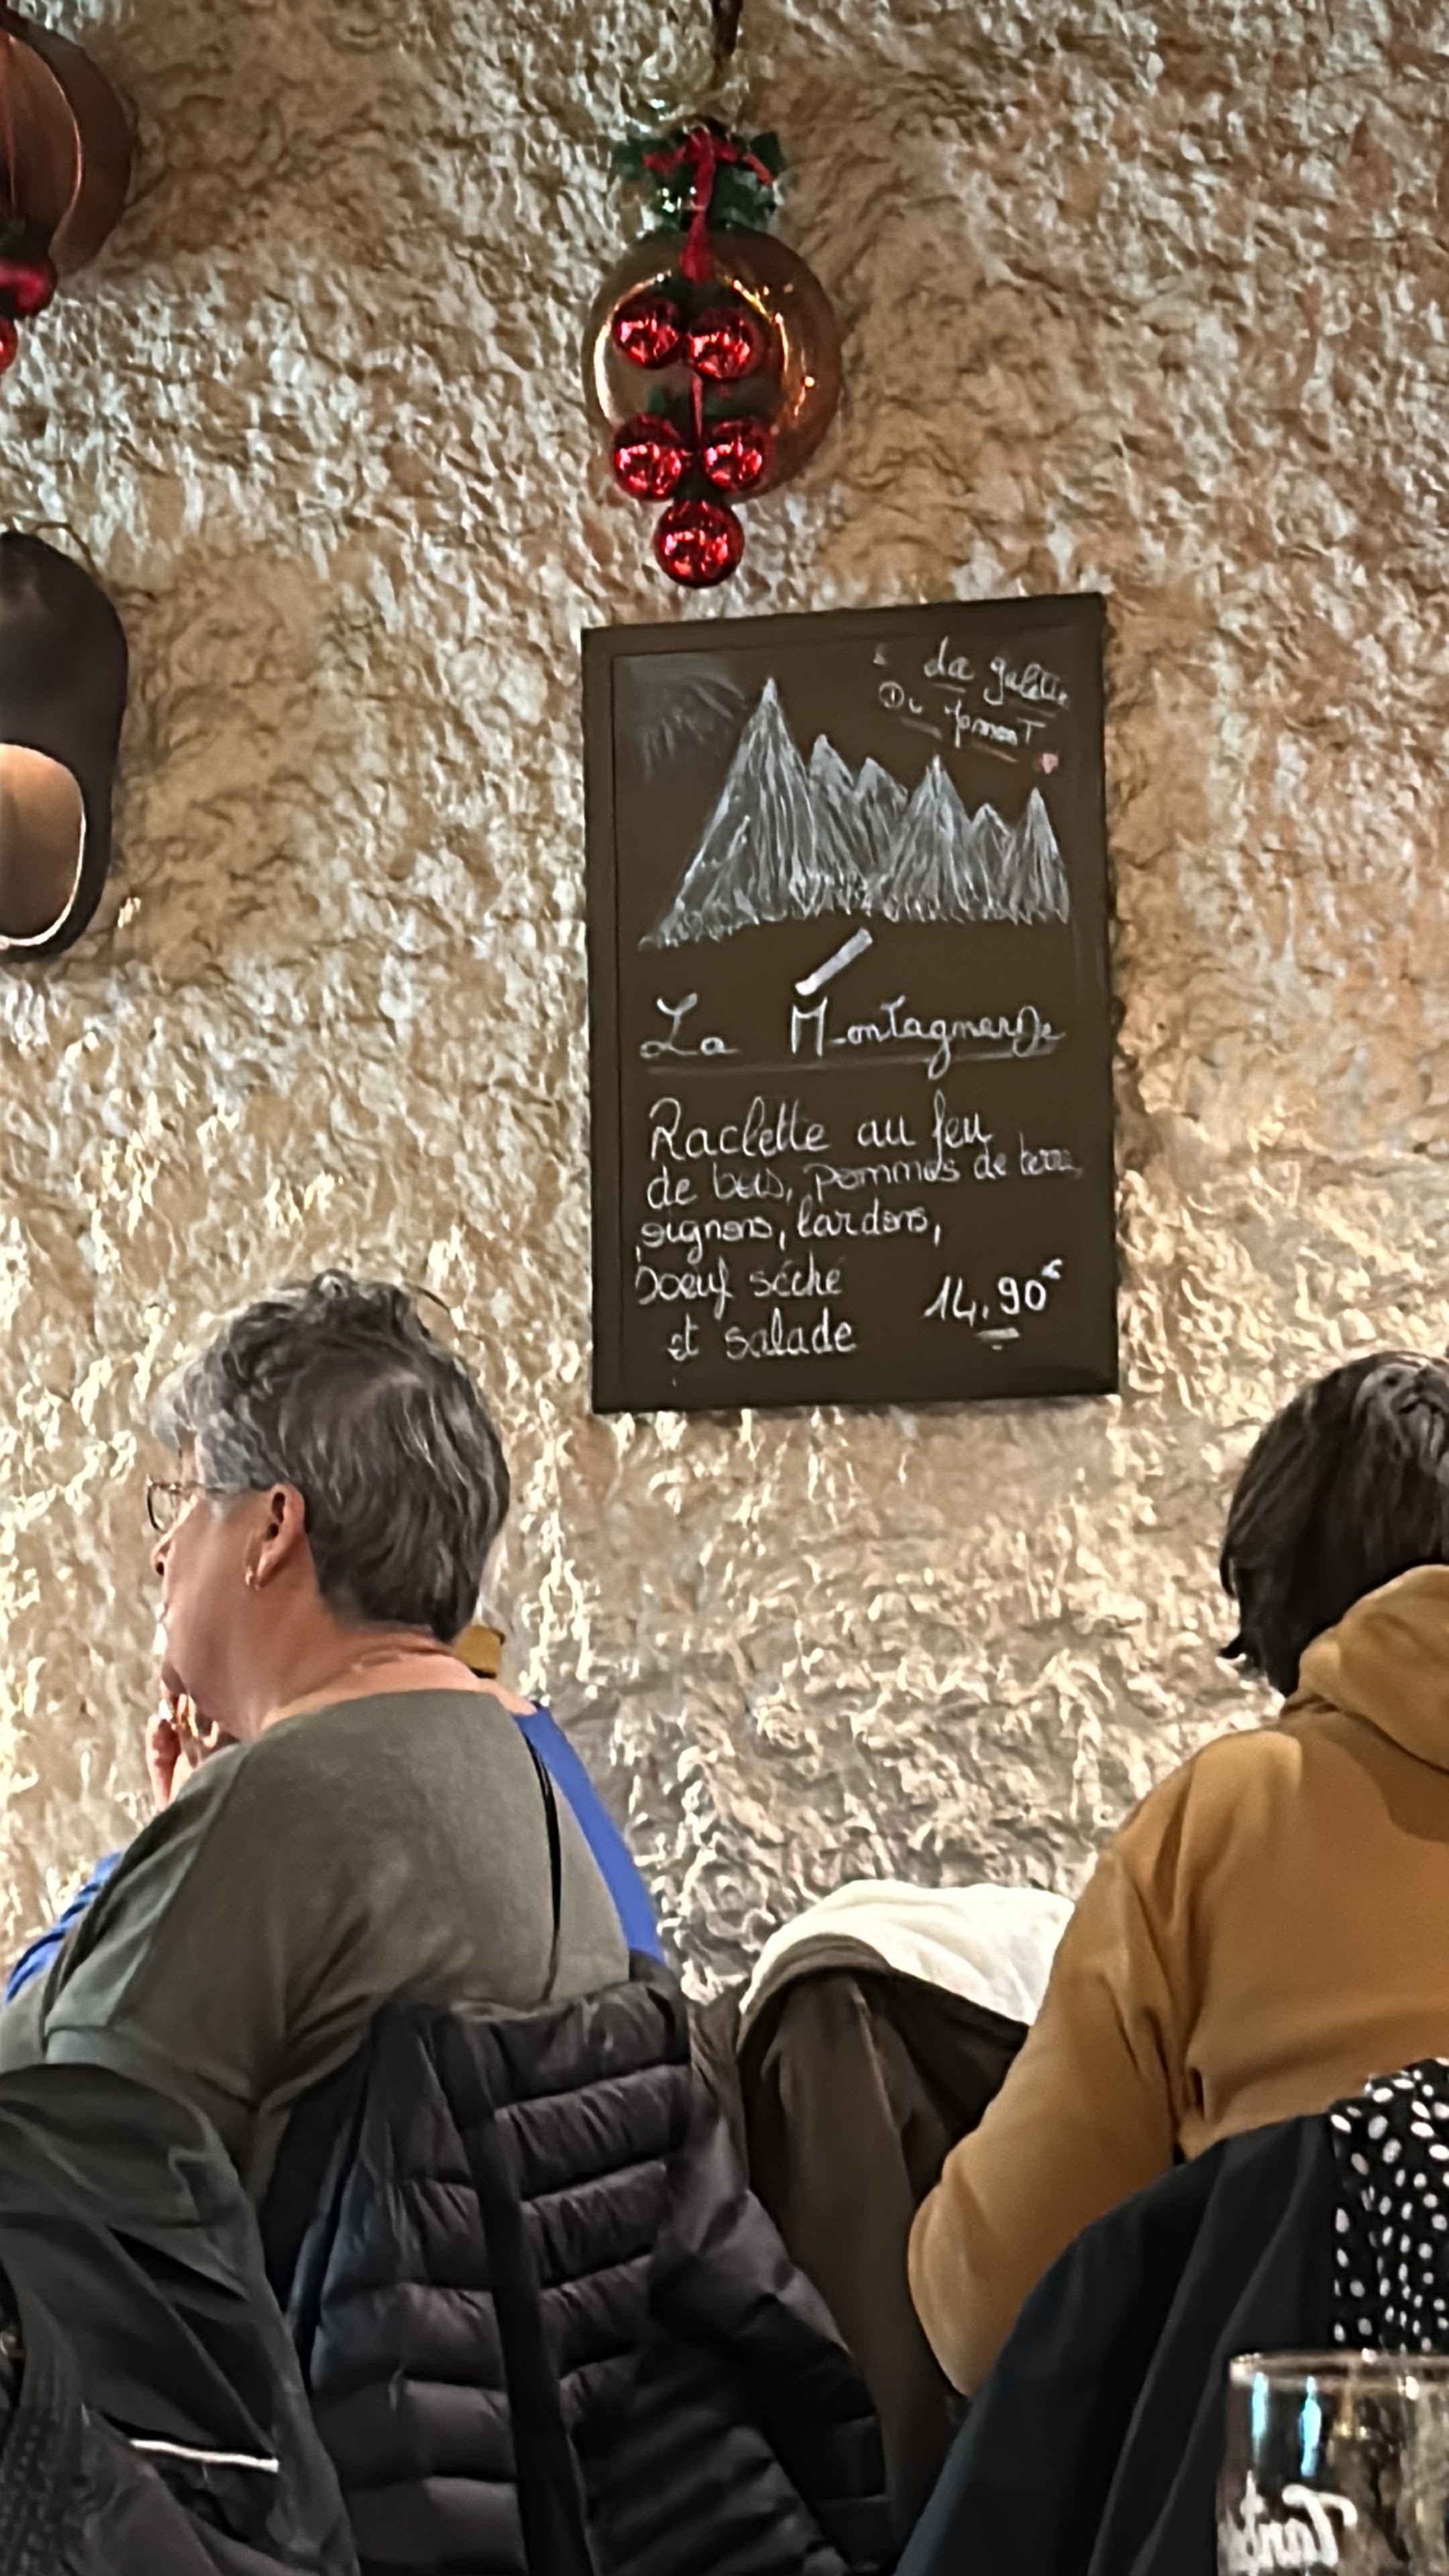 La galette
Du moment
La Montagnarde
Raclette au feu
de bois, pommes de terre,
oignons, lardons,
boeuf séché
et salade 14.90€